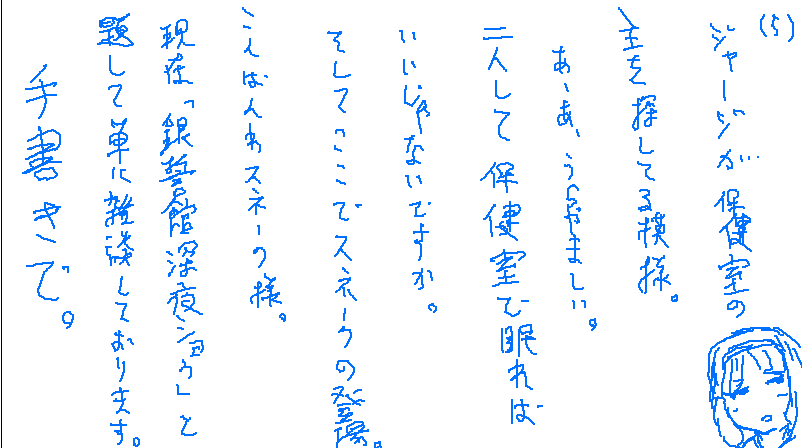 (5)
ジャージが…保健室の
主を探してる模様。
あ、あ、うらやましい。
二人して保健室で眠れば
いいじゃないですか。
そしてここでスネークの登場。
こんばんわスネーク様。
現在「銀誓館深夜ショウ」と
題して単に雑談しております。
手書きで。